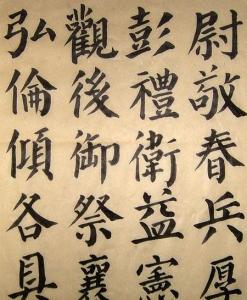 尉敬春兵厚
彭禮衛益憲
觀後御祭襄
弘倫傾各具